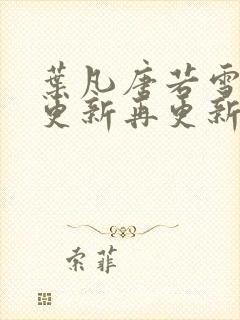 葉凡唐若雪
更新再更新
索菲